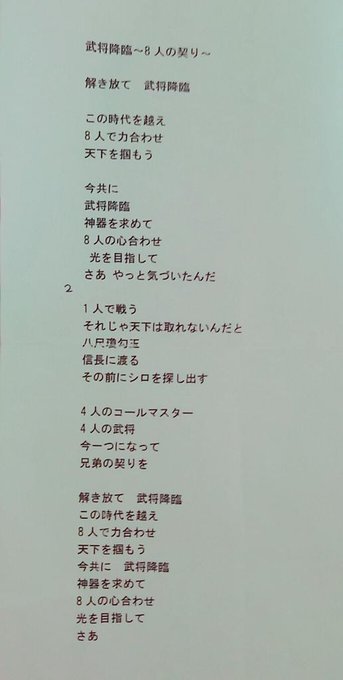 武将降臨～8人の契り～
解き放て　武将降臨
この時代を越え
8人で力合わせ
天下を掴もう
今共に
武将降臨
神器を求めて
8人の心合わせ
光を目指して
さあ やっと気づいたんだ
2
1人で戦う
それじゃ天下は取れないんだと
八尺瓊勾玉
信長に渡る
その前にシロを探し出す
4人のコールマスター
4人の武将
今一つになって
兄弟の契りを
解き放て　武将降臨
この時代を越え
8人で力合わせ
天下を掴もう
今共に　武将降臨
神器を求めて
8人の心合わせ
光を目指して
さあ